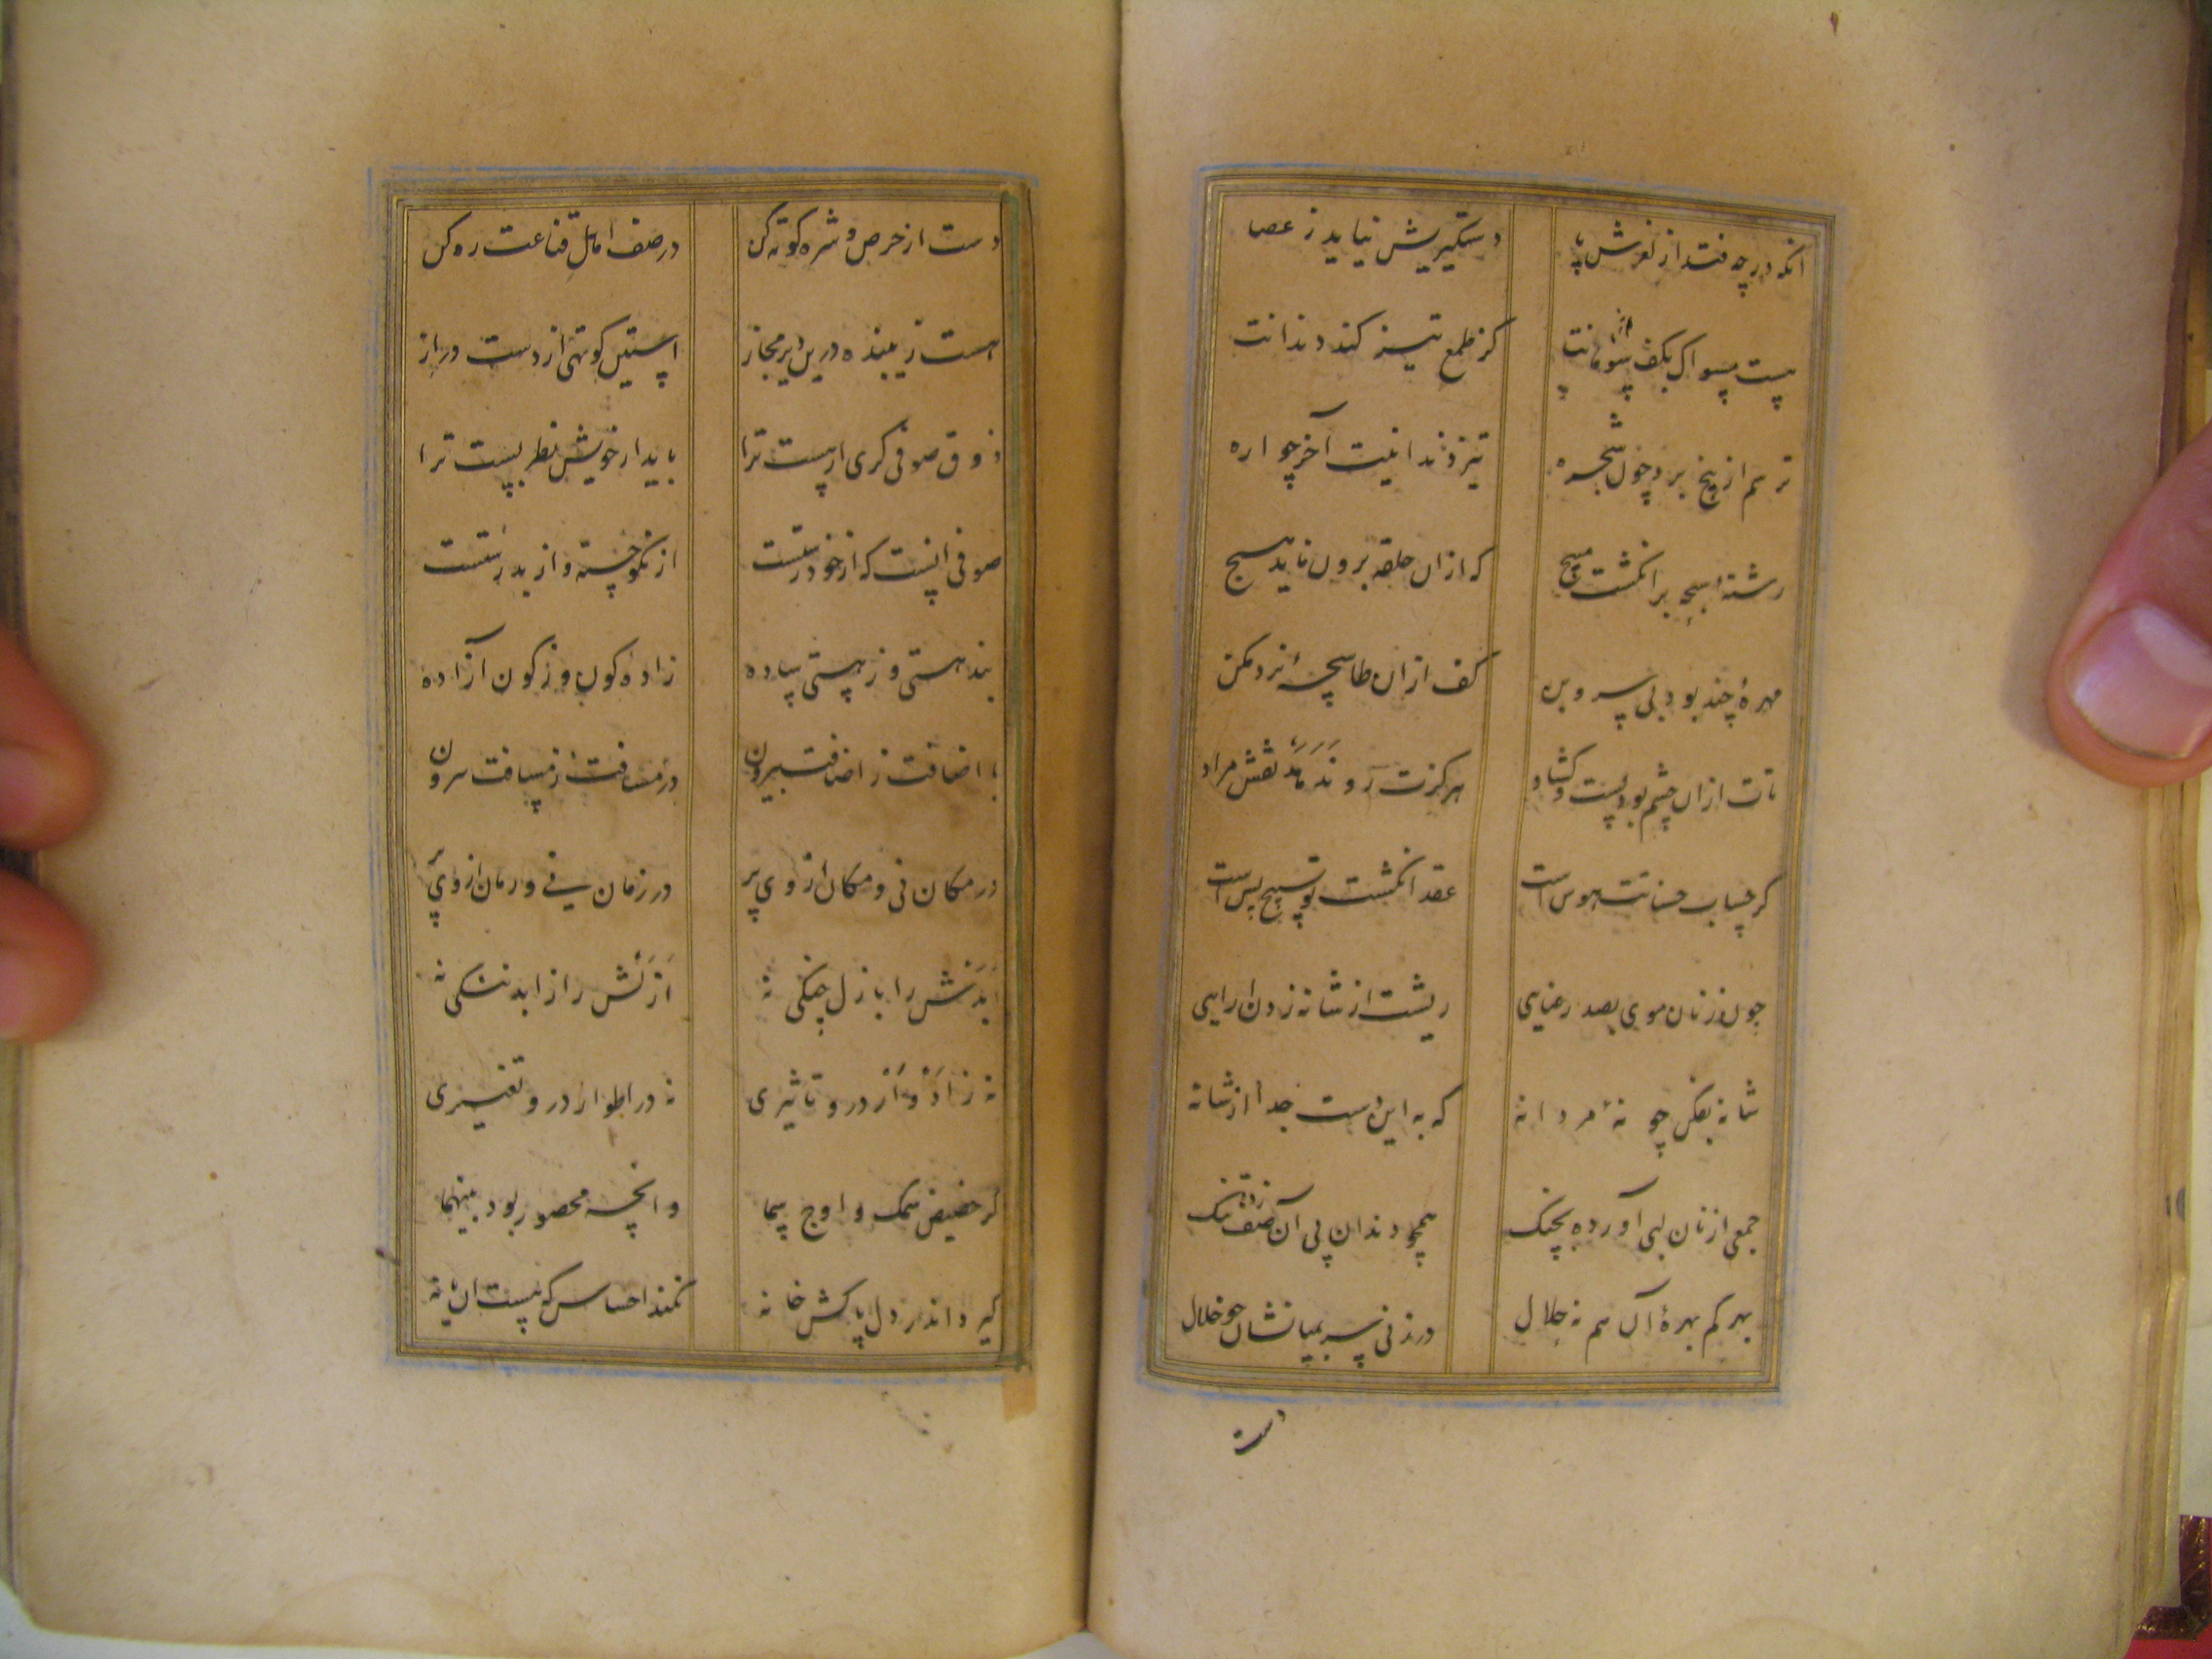 آنکه در چه فتد از لغزش پا دستگیریش نیاید ز عصا
نیست مسواک بکف سوهانت کز طمع تیز کند دندانت
ترسم از بیخ برد چون شجره تیز دندانیت آخر چو اره
رشتهٔ سبحه بر انگشت مپیچ که ازان حلقه برون ناید هیچ
مهرهٔ چند بود بی سر و بن کف ازان طاسچهٔ نرد مکن
تات ازان چشم بود بست و گشاد هرگزت رو ندهد نقش مراد
گر حساب حسناتت هوس است عقد انگشت تو تسبیح بس است
چون زنان موی بصد رعنایی ریشت از شانه زدن آرایی
شانه بفکن چو نهٔ مردانه که به این دست جدا از شانه
جمعی از نان لبی آورده بچنگ همچو دندان پی آن صف زده تنگ
بهر کم بهرهٔ آن هم نه حلال در زنی سر بمیانشان چو خلال
دست
دست از حرص و شره کوته کن در صف اهل قناعت ره کن
هست زیبنده درین دیر مجاز آستین کوتهی از دست دراز
ذوق صوفی گری ار هست ترا باید از خویش نظر بست ترا
صوفی آنست که از خود رستست از نکو جسته و از بد رستست
بند هستی و ز هستی ساده زادهٔ کون و ز کون آزاده
با اضافت ز اضافت بیرون در مسافت ز مسافت بیرون
در مکان نی و مکان از وی پر در زمان نی و زمان از وی پر
ابدش را بازل جنگی نه ازلش را ز ابد ننگی نه
نه ز ادوار درو تأثیری نه در اطوار درو تغییری
گر حضیض سمک و اوج سما وانچه محصور بود بینهما
گیرد اندر دل پاکش خانه نکند احساس که هست آن یا نه